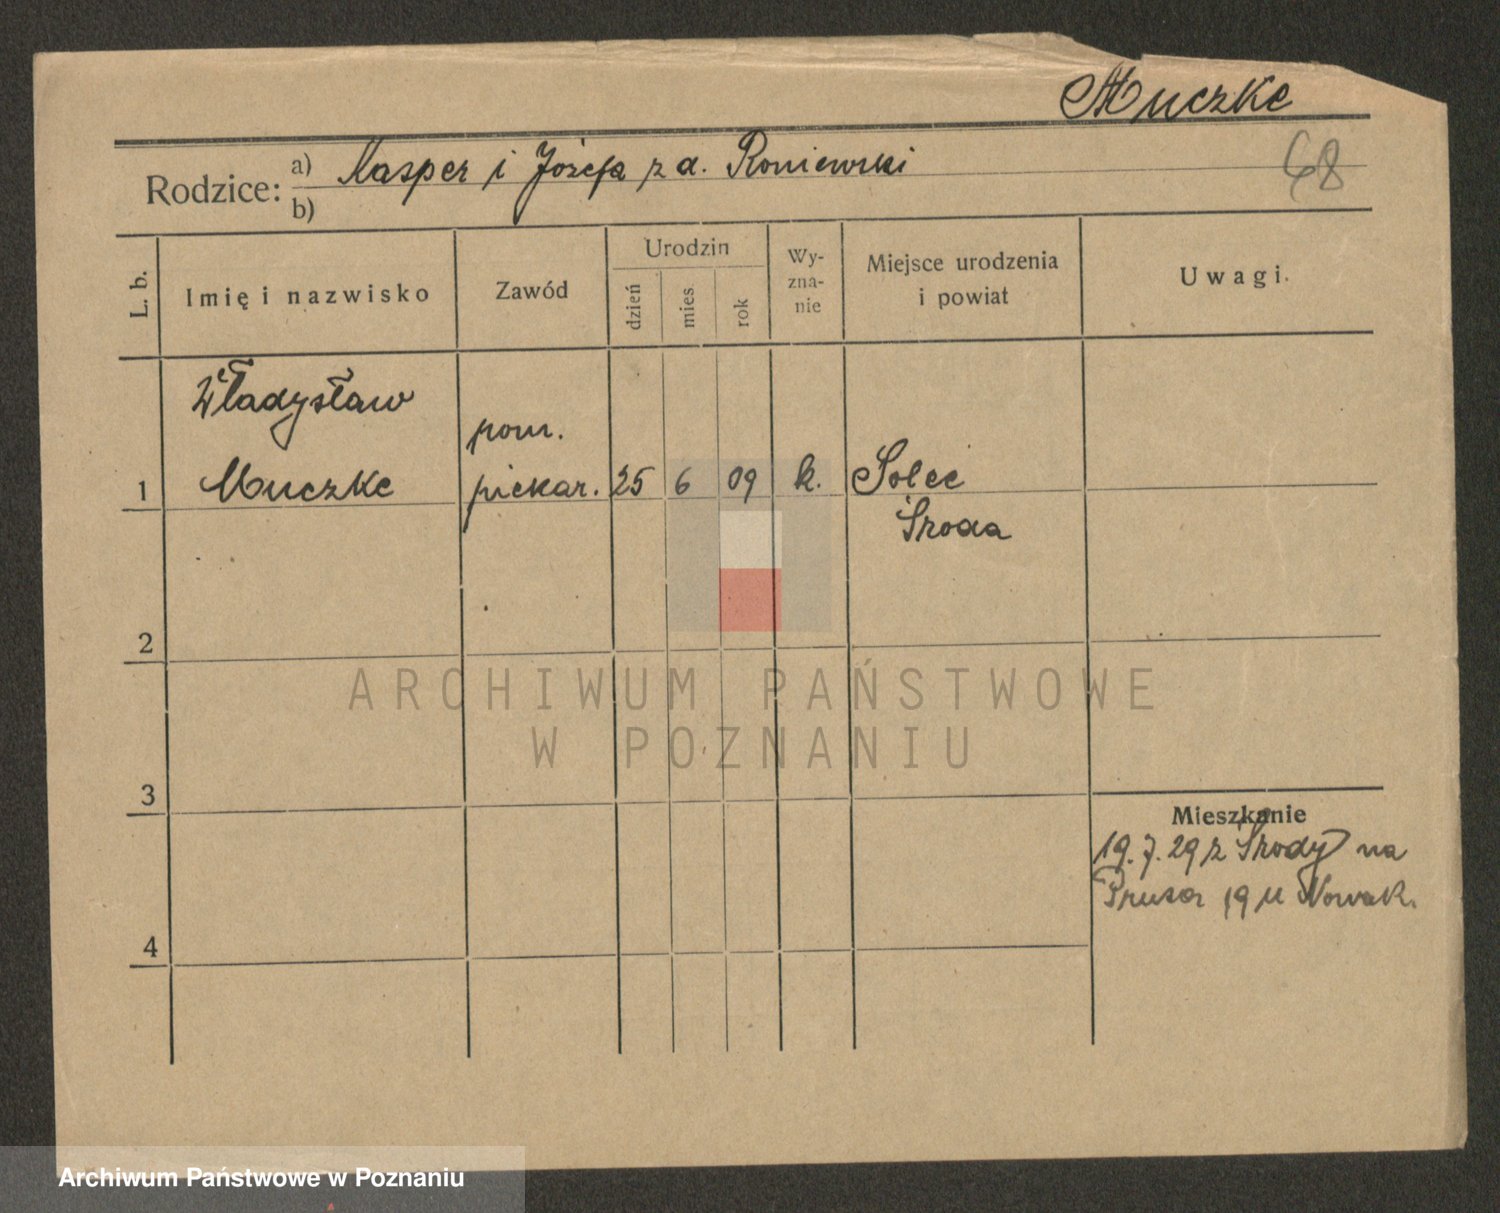 Muczke
Rodzice: a) Kasper i Józefa z d. Roniewski
b)
68
L. b.
Imię i nazwisko
Zawód
Urodzin
dzień
mies
rok
Wy-
zna-
nie
Miejsce urodzenia
i powiat
Uwagi.
Władysław
pom.
1 Muczke piekar. 25 6 09 k. Solec
Środa
2
ARCHIWUM PAŃSTWOWE
W POZNANIU
3
Mieszkanie
19.7.29 z Środy na
Prusa 19 u Nowak.
4
Archiwum Państwowe w Poznaniu